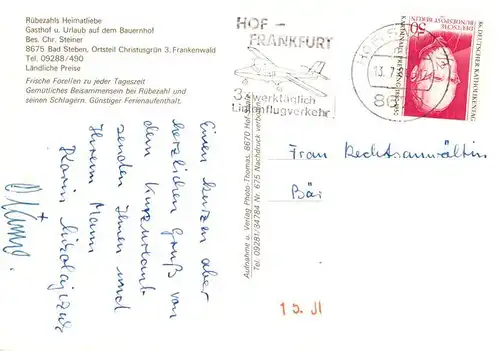 Rübezahls Heimatliebe
Gasthof u. Urlaub auf dem Bauernhof
Bes. Chr. Steiner
8675 Bad Steben, Ortsteil Christusgrün 3. Frankenwald
Tel. 09288/490
Ländliche Preise
Frische Forellen zu jeder Tageszeit
Gemütliches Beisammensein bei Rübezahl und
seinen Schlagern. Günstiger Ferienaufenthalt.
HOF-
FRANKFURT
3x werktäglich
Linienflugverkehr
HOF, S
13.7.
86
50
DEUTSCHE
BUNDESPOST BERLIN
86. DEUTSCHER KATHOLIKENTAG
Einen kurzen aber
herzlichen Gruß von
dem Kurzurlaub
senden Ihnen und
Ihrem Mann
Karin
Aufnahme u. Verlag Photo-Thomas, 8670 Hof-Saale
Tel. 09281/84784 Nr. 675 Nachdruck verboten
Frau Rechtsanwältin
Bär
15. JI